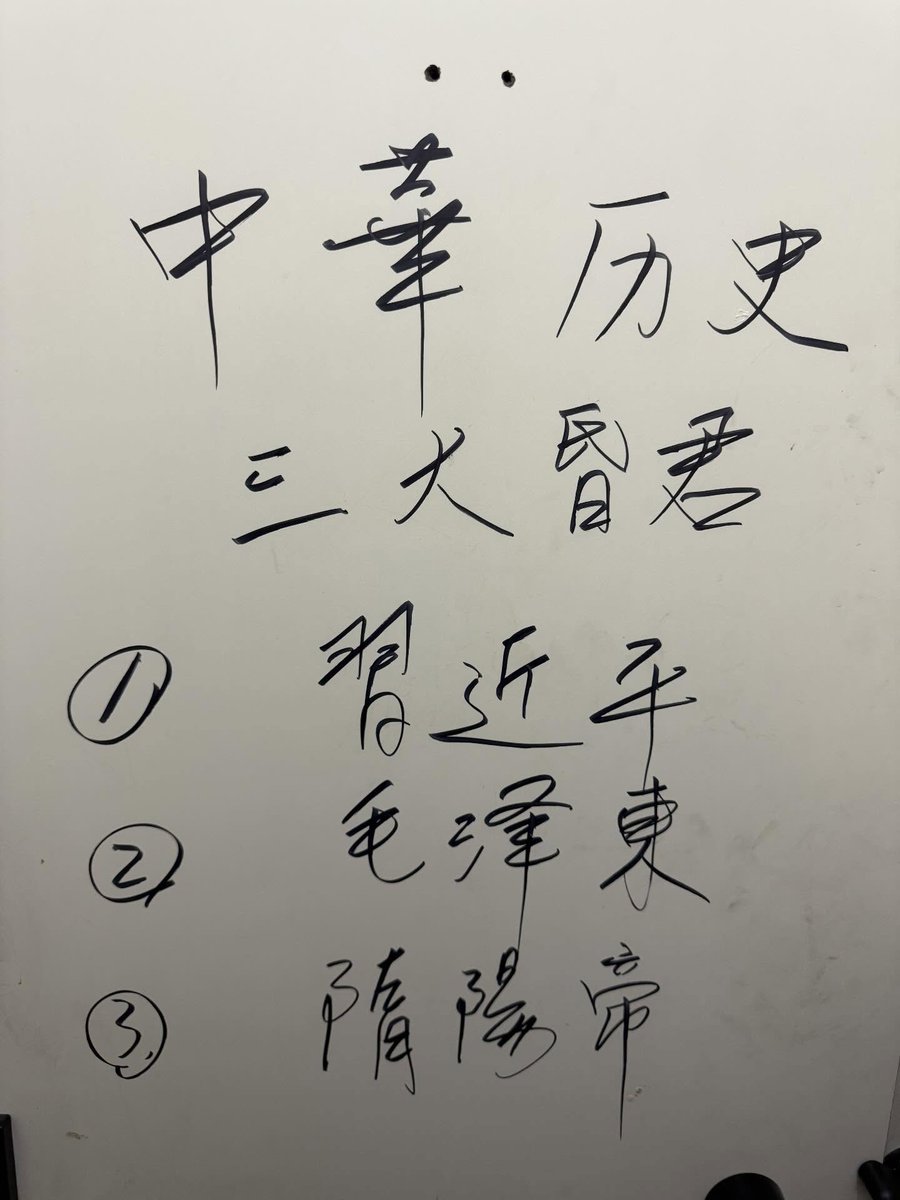 中華历史
三大昏君
① 習近平
② 毛泽東
③ 隋陽帝